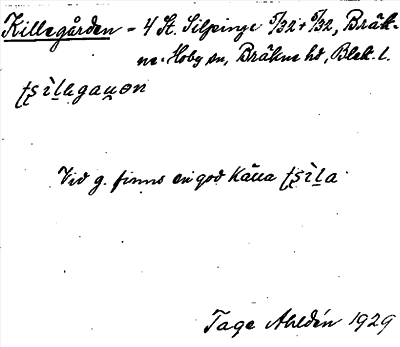 Killegården - 4 St. Silpinge 5/32 + 5/32, Bräk-
ne-Hoby sn, Bräkne hd, Blek. l.
ʈʂìḷagau̯ən
Vid g. finns en god källa ʈʂìḷa
Tage Ahldén 1929